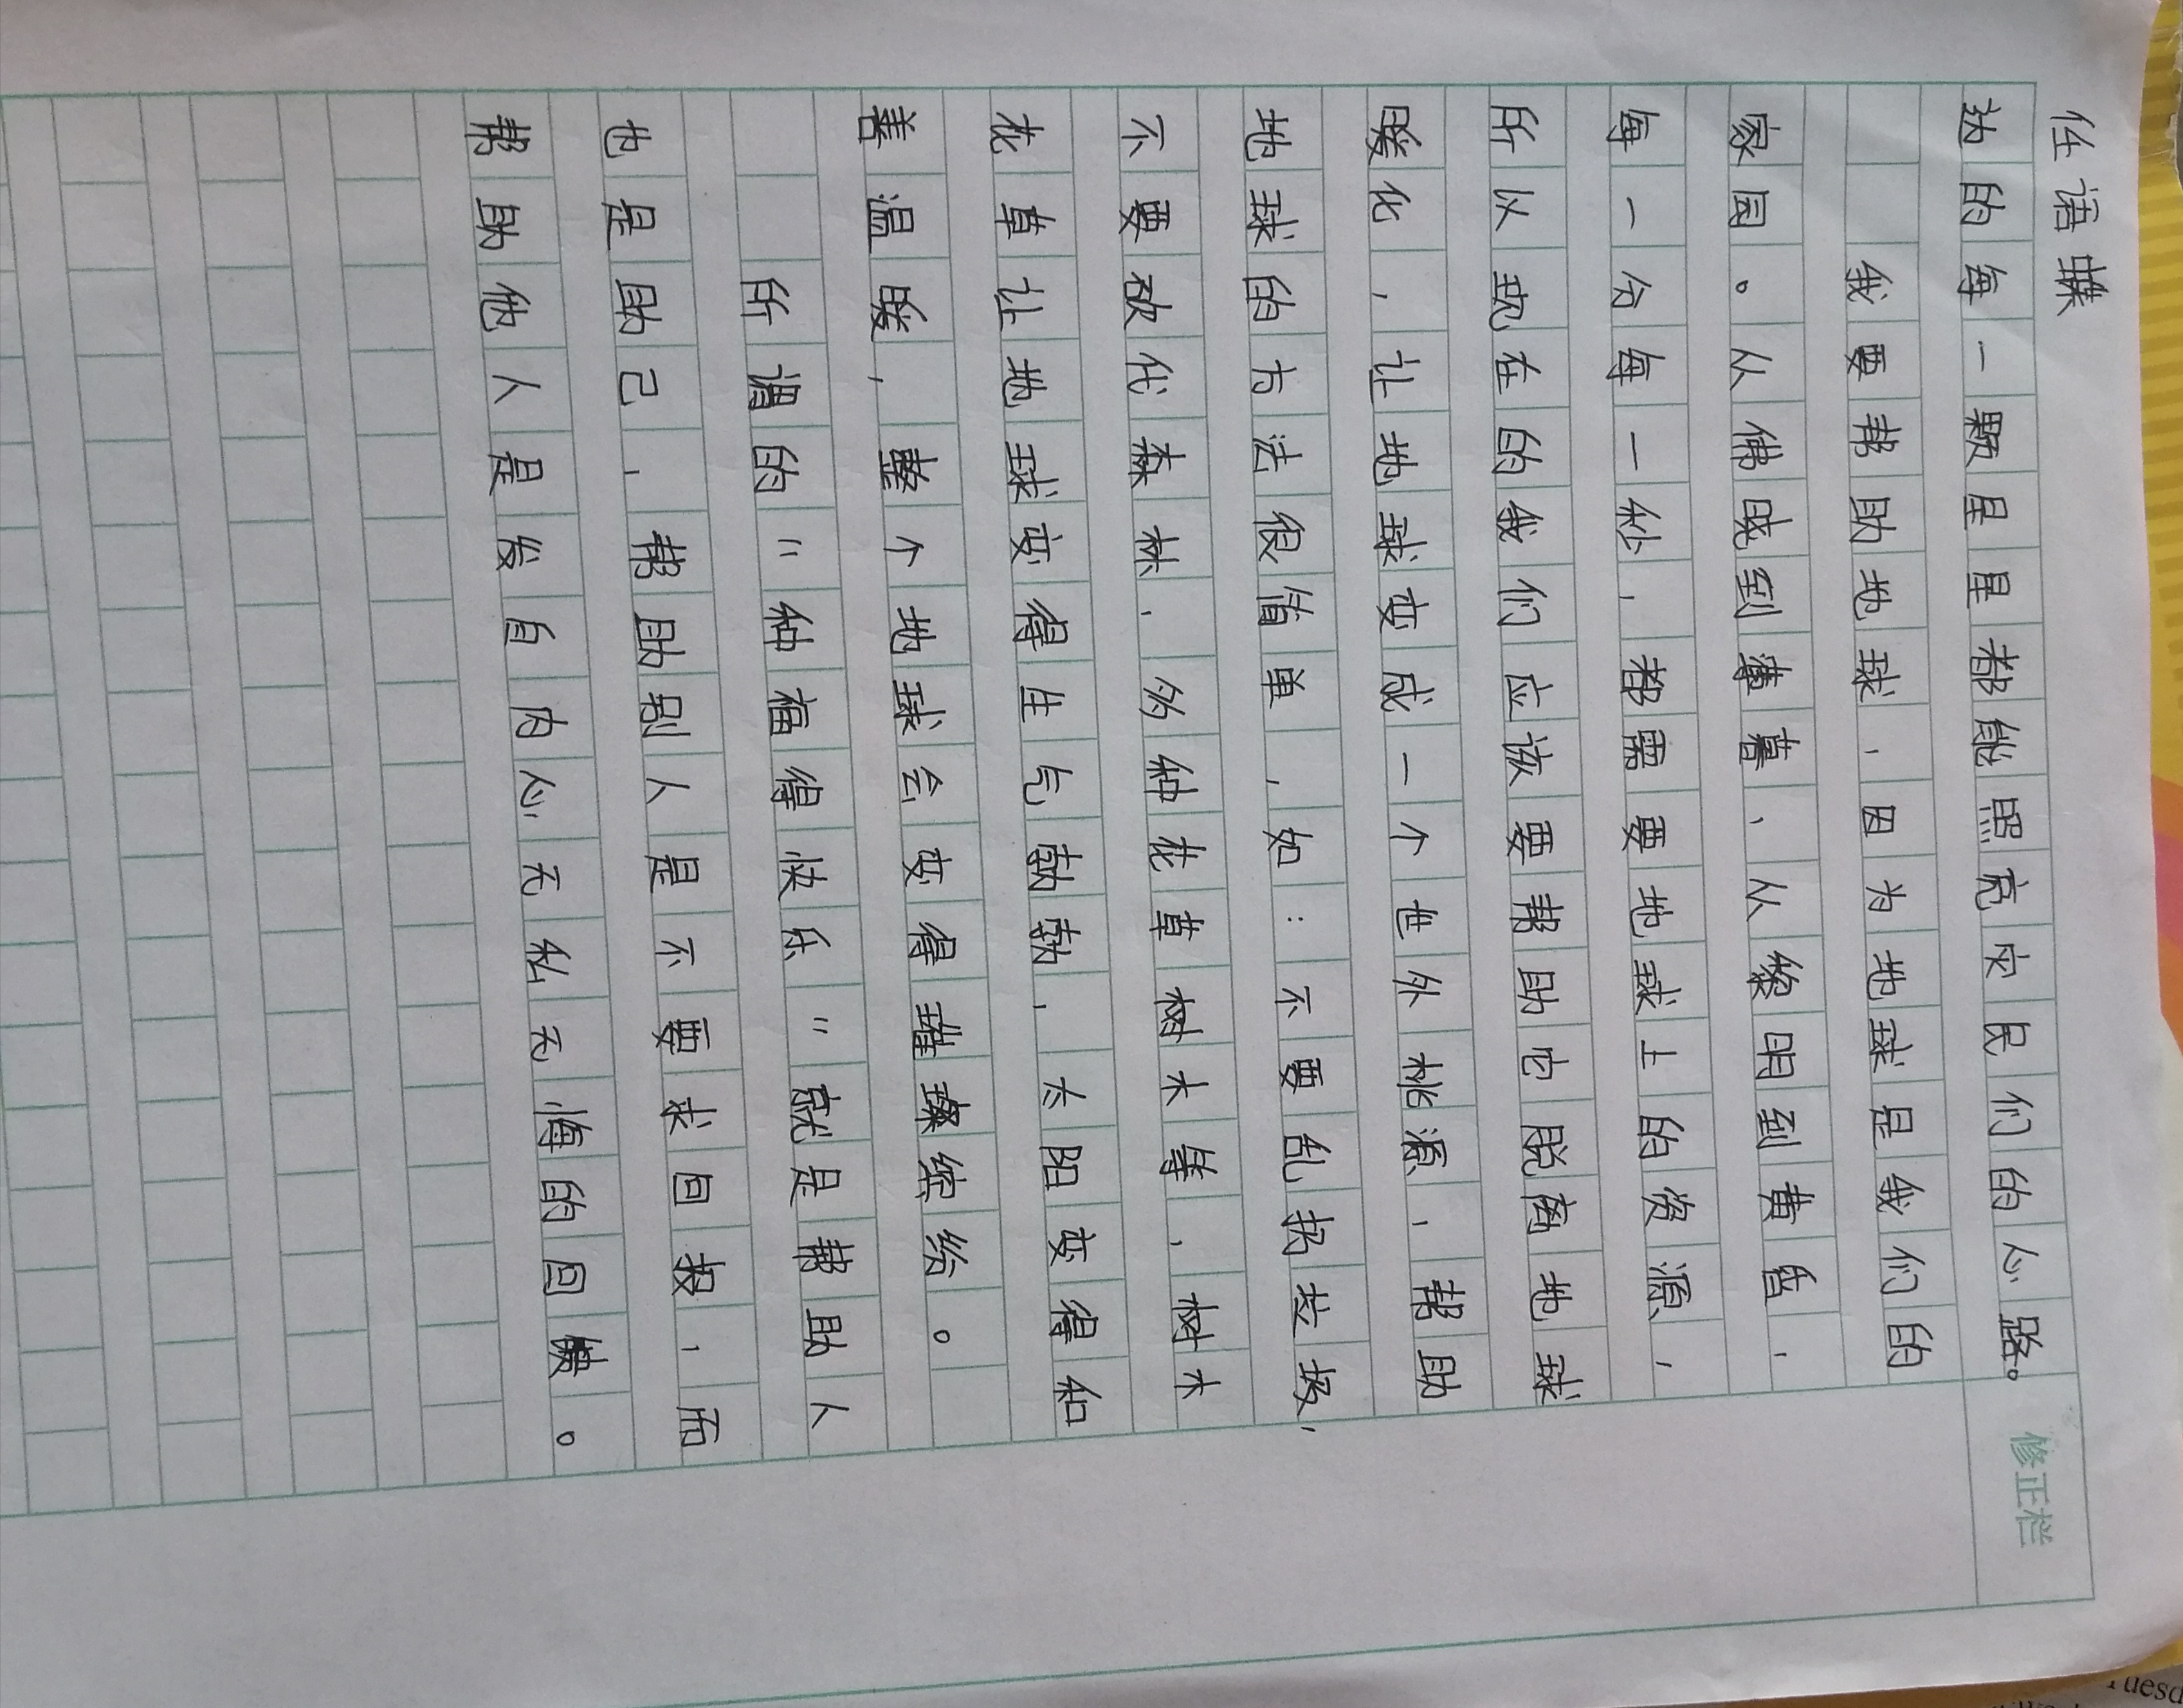 任语蝶
为的每一颗星星都能照亮灾民们的心路。
我要帮助地球，因为地球是我们的
家园。从佛晓到薄暮，从黎明到黄昏，
每一分每一秒，都需要地球上的资源，
所以现在的我们应该要帮助它脱离地球
暖化，让地球变成一个世外桃源，帮助
地球的方法很简单，如：不要乱扔垃圾，
不要砍伐森林，多种花草树木等，树木
花草让地球变得生气勃勃，太阳变得和
善温暖，整个地球会变得璀璨缤纷。
所谓的"种福得快乐"就是帮助人
也是助己，帮助别人是不要求回报，而
帮助他人是发自内心无私无悔的回馈。
修正栏